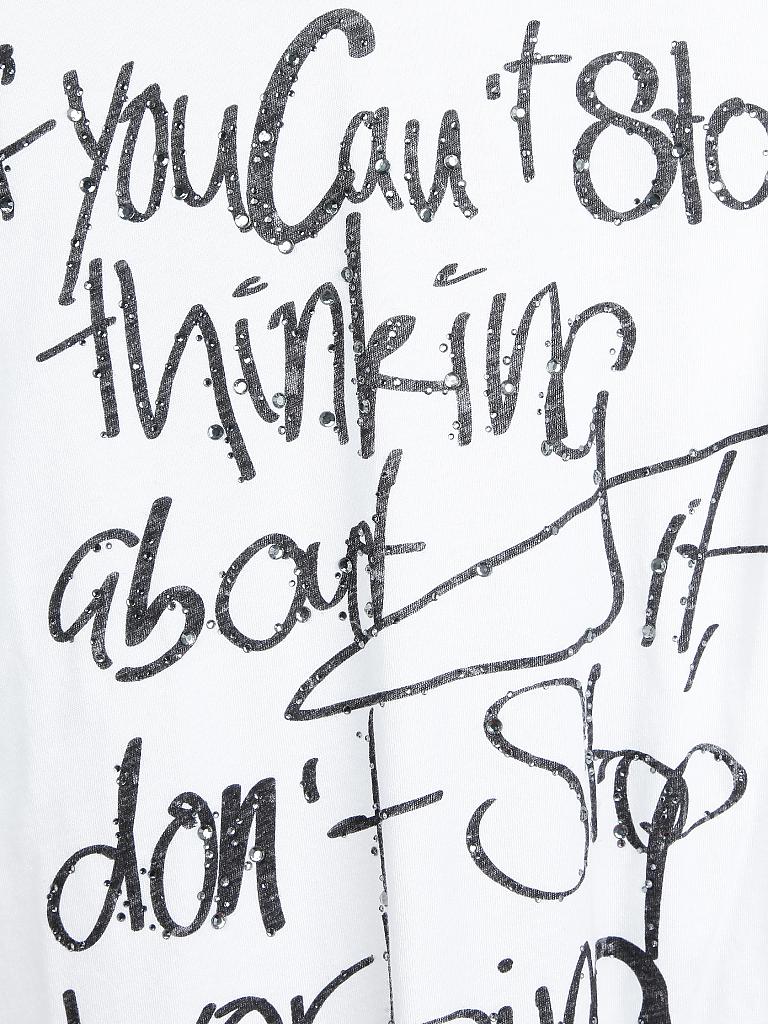 If you Can't Stop
thinking
about it,
don't Stop